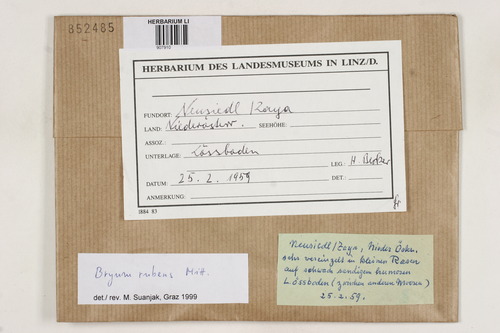 852485
HERBARIUM LI
HERBARIUM DES LANDESMUSEUMS IN LINZ/D.
FUNDORT: Neusiedl Zaya
LAND: Niederösterr. SEEHÖHE:
ASSOZ.:
UNTERLAGE: Lössboden
LEG.: H.
DATUM: 25. 2. 1959 DET.:
ANMERKUNG:
I884 83
Bryum rubens Mitt.
det./ rev. M. Suanjak, Graz 1999
Neusiedl/Zaya, Nieder Österr.
sehr vereinzelt in kleinen Rasen
auf schwach sandigen humosen
Lössboden (zwischen anderen Moosen)
25.2.59.